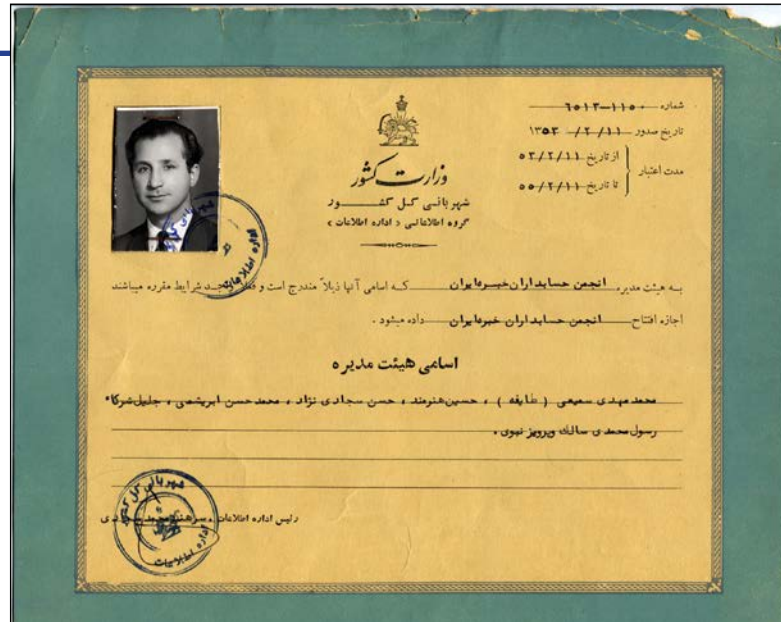 شماره ۱۱۵۰-۶۵۱۳
تاریخ صدور ۱۳۵۳/۲/۱۱
مدت اعتبار
از تاریخ ۵۳/۲/۱۱
تا تاریخ ۵۵/۲/۱۱
وزارت کشور
شهربانی کل کشور
گروه اطلاعاتی « اداره اطلاعات »
به هیئت مدیره انجمن حسابداران خبره ایران که اسامی آنها ذیلاً مندرج است و فعلا واجد شرایط مقرره میباشند
اجازه افتتاح انجمن حسابداران خبره ایران داده میشود .
اسامی هیئت مدیره
محمد مهدی سمیعی ( طایفه ) ، حسین هنرمند ، حسن سجادی نژاد ، محمد حسن ابریشمی ، جلیل شرکاء
رسول محمدی سالک وپرویز نبوی .
رئیس اداره اطلاعات
شهربانی کل کشور
اداره اطلاعات
اداره اطلاعات